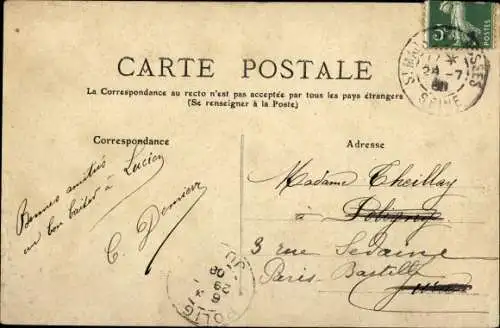 CARTE POSTALE
La Correspondance au recto n'est pas acceptée par tous les pays étrangers
(Se renseigner à la Poste)
Correspondance
Adresse
Bonnes amitiés
un bon baiser à Lucien
C. Demier
Madame Theillay
à
Poligny
3 rue Sedaine
Paris Bastille
5c
17 *
24-7
SEINE
POLIGNY